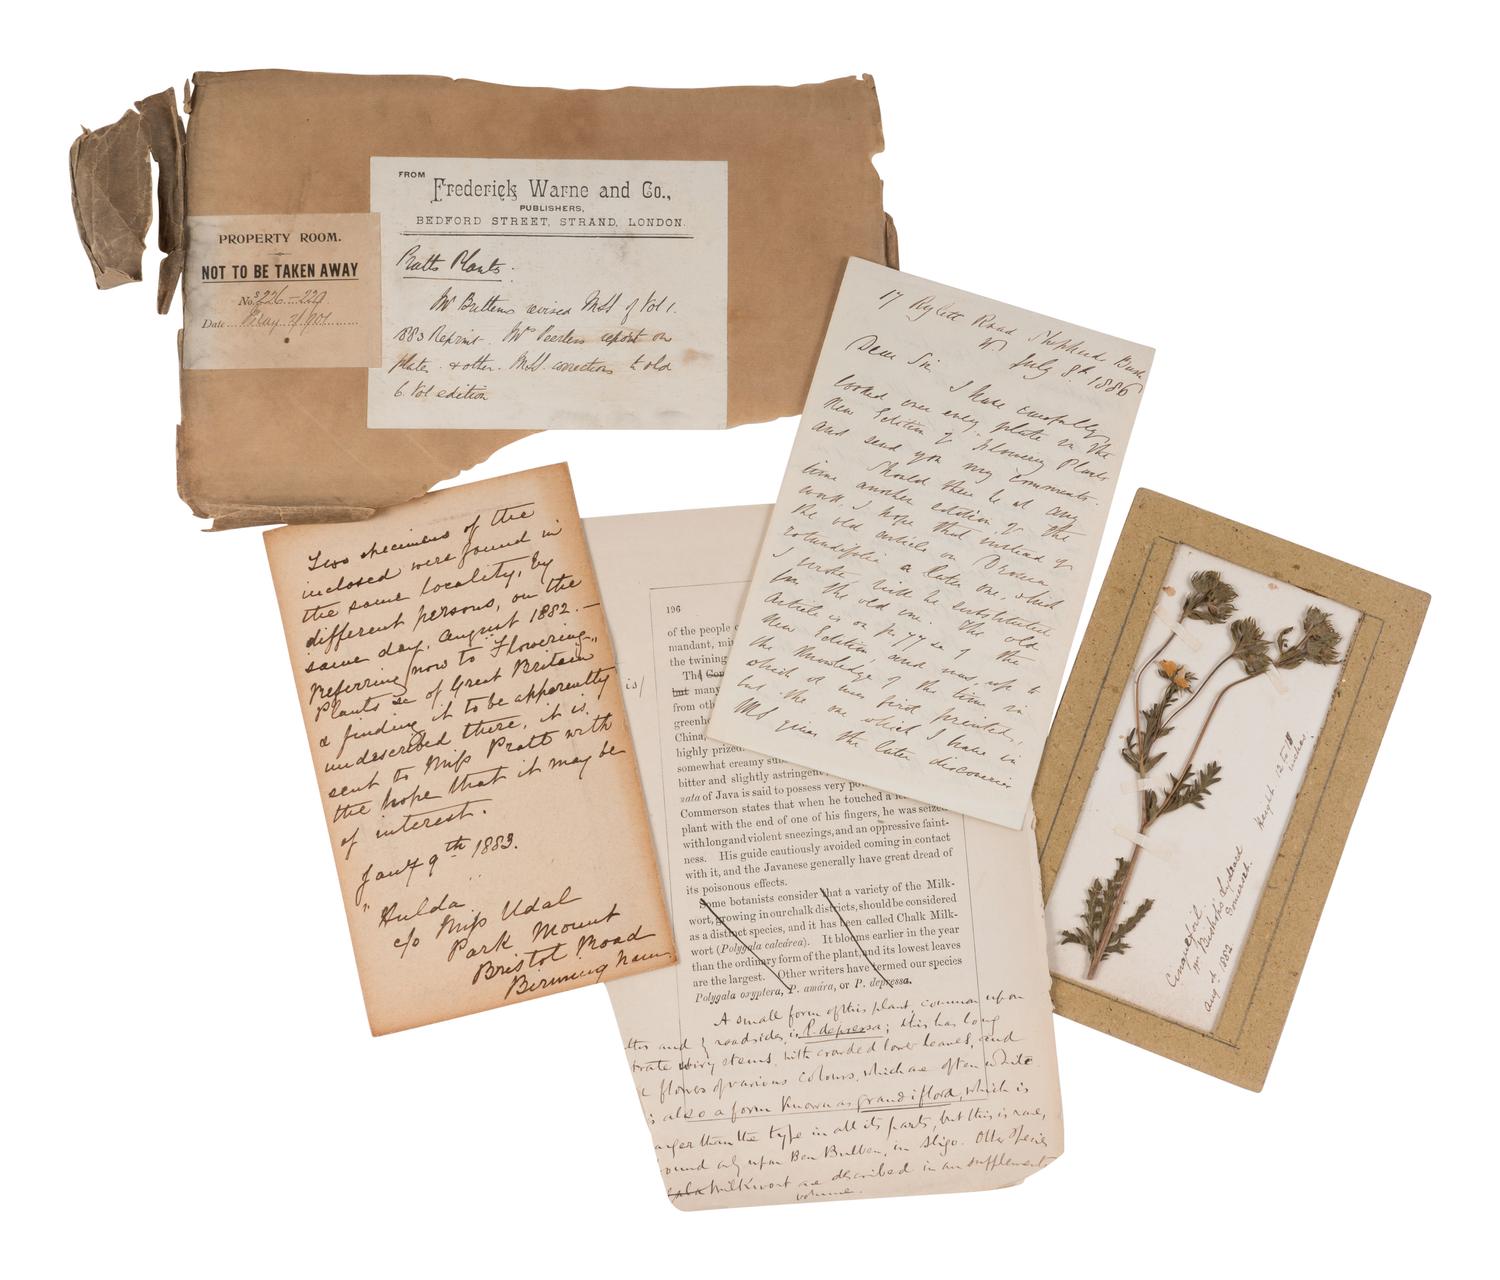 FROM
Frederick Warne and Co.,
PUBLISHERS,
BEDFORD STREET, STRAND, LONDON.
Pratts Plants.
Mr Brittens revised MSS of Vol 1.
1883 Reprint. Mr Peerless report on
plates & other MSS. corrections to old
6 Vol edition
PROPERTY ROOM.
NOT TO BE TAKEN AWAY
No. 226-229
Date May 2/901
17 Rylett Road Shepherds Bush
W July 8th 1886
Dear Sir, I have carefully
looked over every plate in the
New Edition of Flowering Plants
and send you my comments.
Should there be at any
time another edition of the
work I hope that instead of
the old article on Drosera
rotundifolia a later one, which
I wrote, will be substituted
for the old one. The old
Article is on p. 77 &c of the
New Edition, and was up to
the knowledge of the time in
which it was first printed,
but the one which I have in
MS gives the later discoveries
Two specimens of the
inclosed were found in
the same locality, by
different persons, on the
same day, August 1882. —
Referring now to "Flowering
Plants &c of Great Britain"
& finding it to be apparently
undescribed there, it is
sent to Miss Pratt with
the hope that it may be
of interest.
Jany 9th 1883.
"Hulda"
c/o Miss Udal
Park Mount
Bristol Road
Birmingham
196
of the people
mandant,
the twining
The
but many
from
China,
highly prized.
somewhat creamy
bitter and slightly astringent
zata of Java is said to possess very
Commerson states that when he touched a
plant with the end of one of his fingers, he was seized
with long and violent sneezings, and an oppressive faint-
ness. His guide cautiously avoided coming in contact
with it, and the Javanese generally have great dread of
its poisonous effects.
Some botanists consider that a variety of the Milk-
wort, growing in our chalk districts, should be considered
as a distinct species, and it has been called Chalk Milk-
wort (Polygala calcárea). It blooms earlier in the year
than the ordinary form of the plant, and its lowest leaves
are the largest. Other writers have termed our species
Polygala oxyptera, P. amára, or P. depressa.
is/
A small form of this plant, common upon
and roadsides, is P. depressa; this has long
wiry stems, with crowded lower leaves, and
flowers of various colours, which are often white
is also a form known as grandiflora, which is
than the type in all its parts, but this is rare,
only upon Ben Bulben, in Sligo. Other species
Milkwort are described in an supplement
volume.
Height 12 to 18
inches.
Cinquefoil
nr Bishop's Lydeard
Somerset.
Aug st 1882